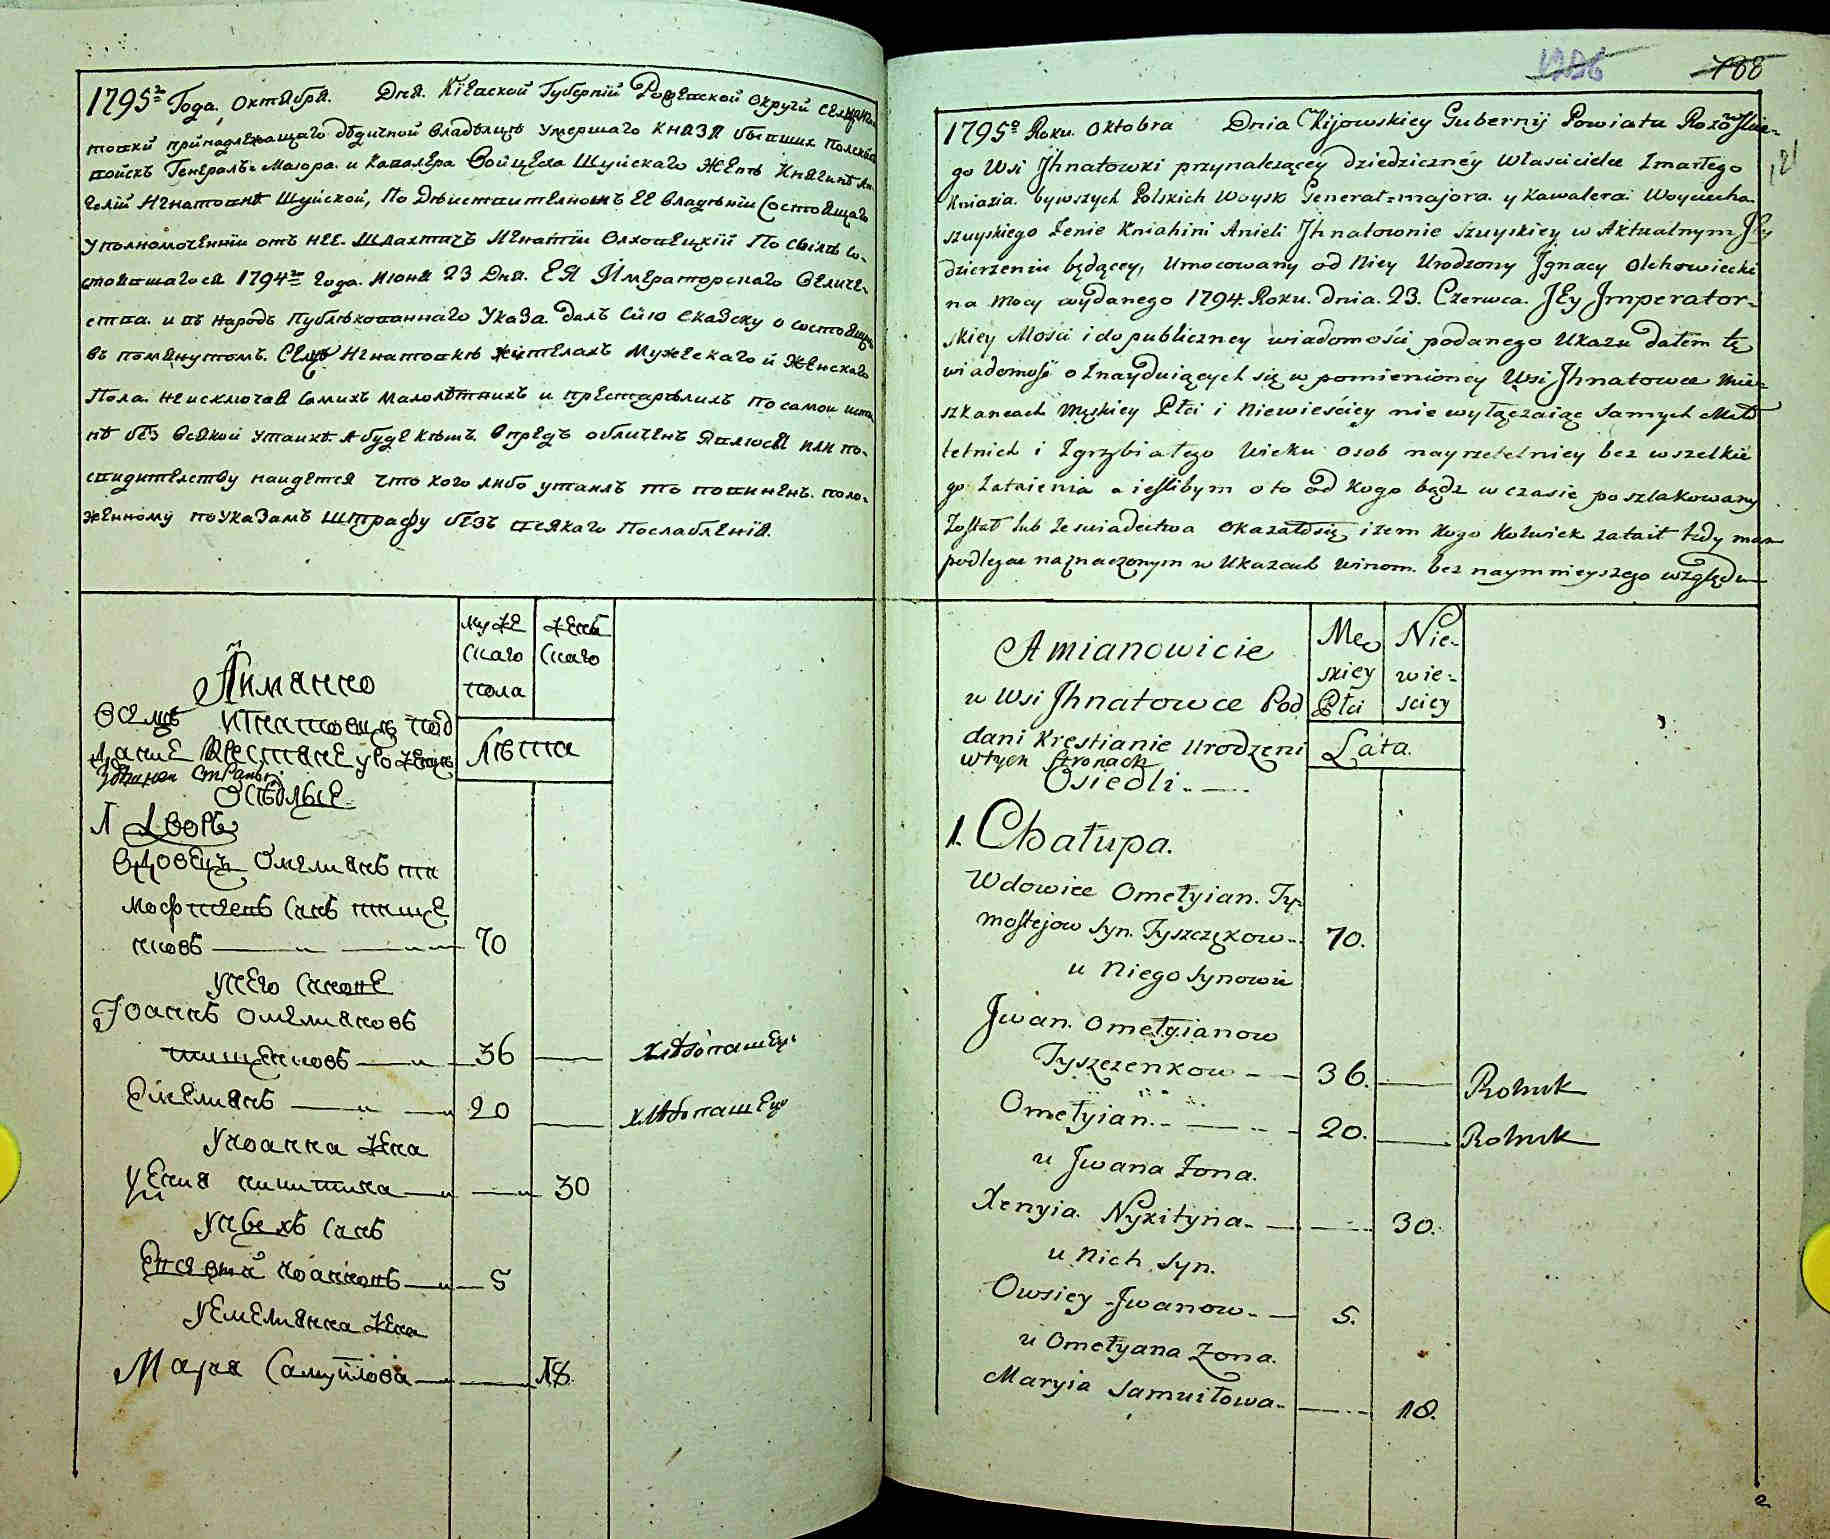 1795го Года, Октября. Дня. Кіевской Губерніи
принадлежащаго дѣдичной владѣлицѣ умершаго Князя бывшихъ Полскихъ
войскъ Генералъ Маіора и Кавалера Войцеха Шуйскаго Женѣ Княгинѣ Ан-
гелій Игнатовнѣ Шуйской, По Дѣйствителномъ ЕЕ Владѣніи Состоящаго
Уполномоченніи отъ нее. Шляхтичъ Игнатіи Олховецкій По силѣ со-
стоявшагося 1794го Года. Июня 23 Дня. ЕЯ Императорскаго Величе-
ства. и въ народъ Публѣкованнаго Указа. далъ Сию Сказку о состоящихъ
въ помянутомъ. Селѣ Игнатовкѣ жителахъ Мужескаго и Женскаго
Пола. не исключая Самихъ Малолѣтнихъ и престарѣлихъ по самои исти-
нѣ без Всякои утаики. А буде кѣмъ. Впредъ обличенъ явлюся или по-
свидителству наидется что кого либо утаилъ то повиненъ. поло-
женному по Указамъ Штрафу безъ всякаго Послабленія.
муже
скаго
пола
женъ
скаго
Лѣта
Осѣдлые
1 Дворъ
Вдовецъ Омелианъ ти
мофѣевъ Синъ тище
нковъ 70
У него Синове
Іоаннъ Омелиановъ
тищенковъ 36 хлѣбопашецъ
Омелианъ 20 хлѣбопашецъ
У Иоанна Жена
никитина 30
У нихъ Синъ
Иоанновъ 5
У Емелияна Жена
Мария Самуйлова 18
188
1795o Roku Oktobra Dnia Kijowskiey Gubernij Powiatu
go Wsi Jhnatowki przynależącey dziedziczney Włascicielce Zmarłego
Kniazia. bywszych Polskich Woysk Generał=majora. y Kawalera. Woyciecha
Szuyskiego Żenie Kniahini Anieli Jhnatownie Szuyskiey w Aktualnym Jey
dzierżeniu będącey, Umocowany od Niey Urodzony Jgnacy Olchowiecki
na Mocy wydanego 1794. Roku. dnia. 23. Czerwca. JEy Jmperator-
skiey Mości i do publiczney wiadomości podanego Ukazu dałem tę
wiadomość o Znayduiących się w pomienioney Wsi Jhnatowce Mie-
szkancach Męskiey Płci i Niewieściey nie wyłączaiąc Samych Mało
letnich i Zgrzybiałego Wieku osob nayrzetelniey bez wszelkie
go Zataienia a ieślibym o to od Kogo bądz w czasie poszlakowany
Został lub Ze swiadectwa Okazałosię iżem Kogo Kolwiek zataił tedy mam
podlegac naznaczonym w Ukazach Winom. bez naymnieyszego względu
Amianowicie
w Wsi Jhnatowce Pod
dani Krestianie Urodzeni
w tych Stronach
Osiedli.
Męs
skiey
Płci
Nie-
wie-
sciey
Lata.
1. Chałupa.
Wdowiec Omełyian. Ty-
mofiejow Syn. Tyszczękow 70.
u Niego Synowie
Jwan. Omełyianow
Tyszczenkow 36. Rolnik
Omełyian. 20. Rolnik
u Jwana Żona.
Xenyia. Nykityna 30.
u Nich Syn.
Owsiey Jwanow 5.
u Omełyana Żona.
Maryia Samuiłowa 18.